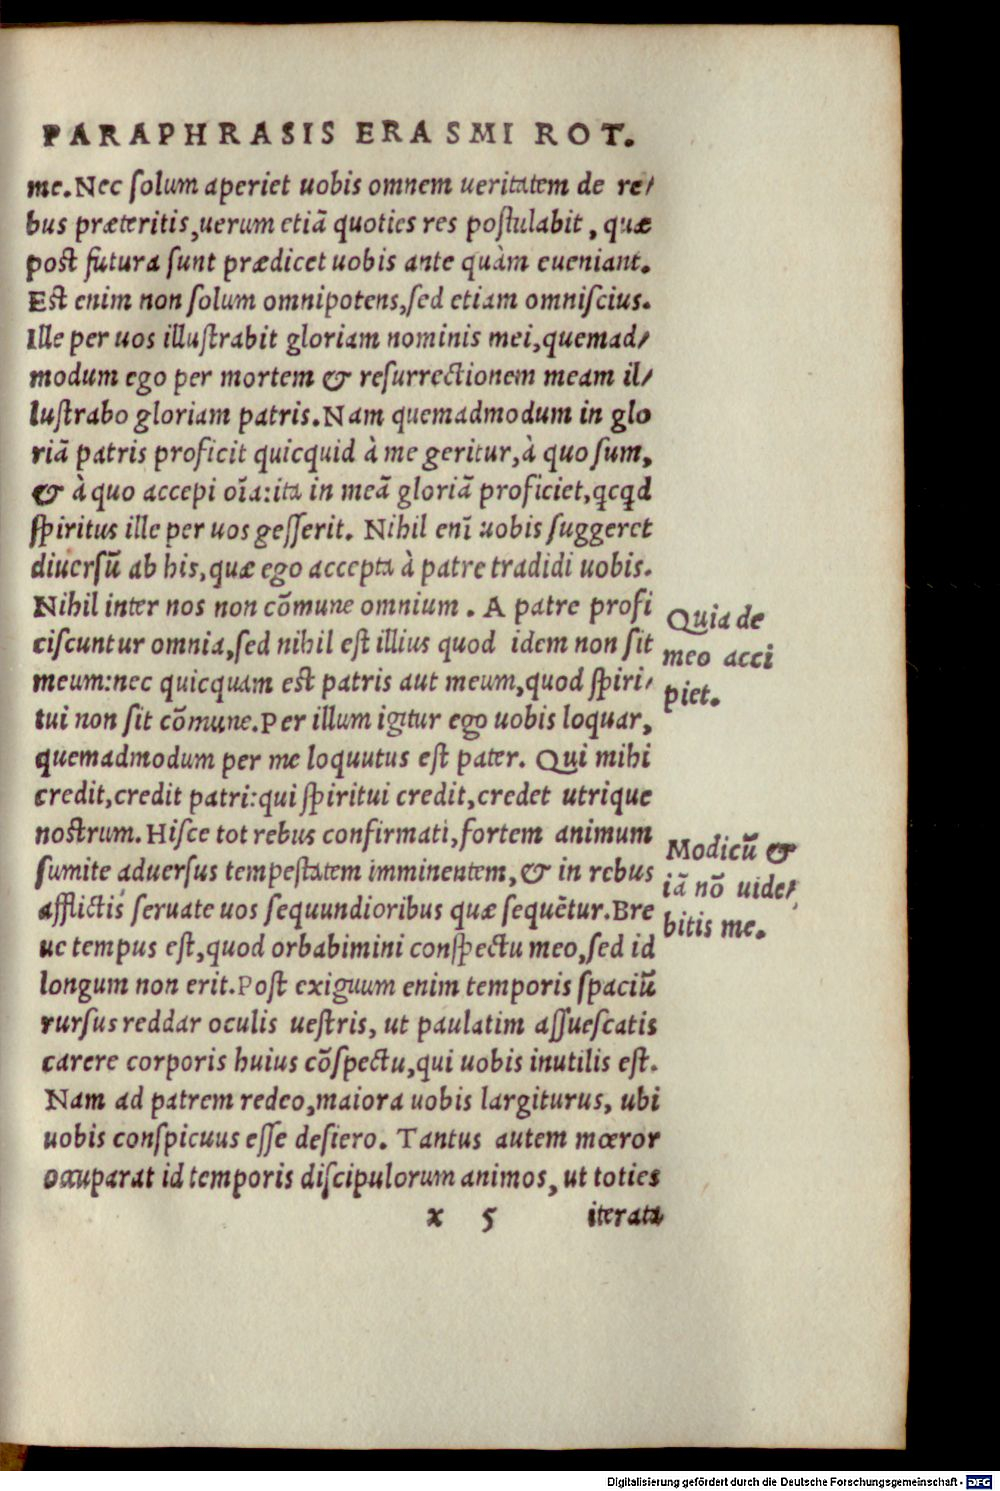 PARAPHRASIS ERASMI ROT.
me. Nec ſolum aperiet uobis omnem ueritatem de re/
bus præteritis, uerum etiã quoties res poſtulabit, quæ
poſt futura ſunt prædicet uobis ante quàm eueniant.
Eſt enim non ſolum omnipotens, ſed etiam omniſcius.
Ille per uos illuſtrabit gloriam nominis mei, quemad/
modum ego per mortem & reſurrectionem meam il/
luſtrabo gloriam patris. Nam quemadmodum in glo
riã patris proficit quicquid à me geritur, à quo ſum,
& à quo accepi oĩa: ita in meã gloriã proficiet, qcqd
ſpiritus ille per uos geſſerit. Nihil enĩ uobis ſuggeret
diuerſũ ab his, quæ ego accepta à patre tradidi uobis.
Nihil inter nos non cõmune omnium. A patre profi
ciſcuntur omnia, ſed nihil eſt illius quod idem non ſit
meum: nec quicquam eſt patris aut meum, quod ſpiri/
tui non ſit cõmune. Per illum igitur ego uobis loquar,
quemadmodum per me loquutus eſt pater. Qui mihi
credit, credit patri: qui ſpiritui credit, credet utrique
noſtrum. Hiſce tot rebus confirmati, fortem animum
ſumite aduerſus tempeſtatem imminentem, & in rebus
afflictis ſeruate uos ſequundioribus quæ ſequẽtur. Bre
ue tempus eſt, quod orbabimini conſpectu meo, ſed id
longum non erit. Poſt exiguum enim temporis ſpaciũ
rurſus reddar oculis ueſtris, ut paulatim aſſueſcatis
carere corporis huius cõſpectu, qui uobis inutilis eſt.
Nam ad patrem redeo, maiora uobis largiturus, ubi
uobis conſpicuus eſſe deſiero. Tantus autem mœror
occuparat id temporis diſcipulorum animos, ut toties
x 5 iterata
Quia de
meo acci
piet.
Modicũ &
iã nõ uide/
bitis me.
Digitalisierung gefördert durch die Deutsche Forschungsgemeinschaft - DFG